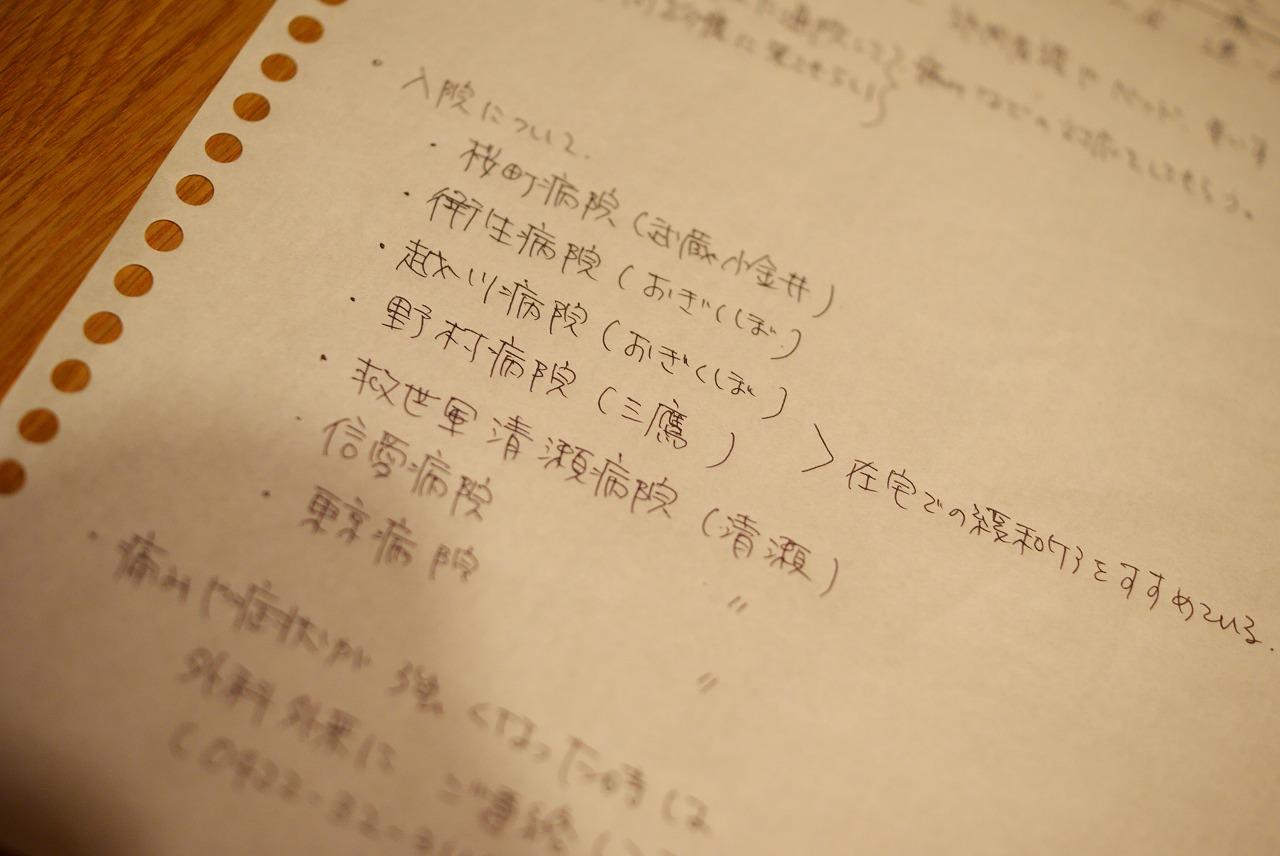 訪問看護やベッド、車いす
に通院して
痛みなどの対応をしてもらう。
・入院について.
・桜町病院(武蔵小金井)
・衛生病院(おぎくぼ)
・越川病院(おぎくぼ)
・野村病院(三鷹) > 在宅での緩和ケアをすすめている.
・救世軍清瀬病院(清瀬)
・信愛病院 〃
・東京病院 〃
・痛みや症状が強くなった時は
外科外来に ご連絡
(0422-32-3